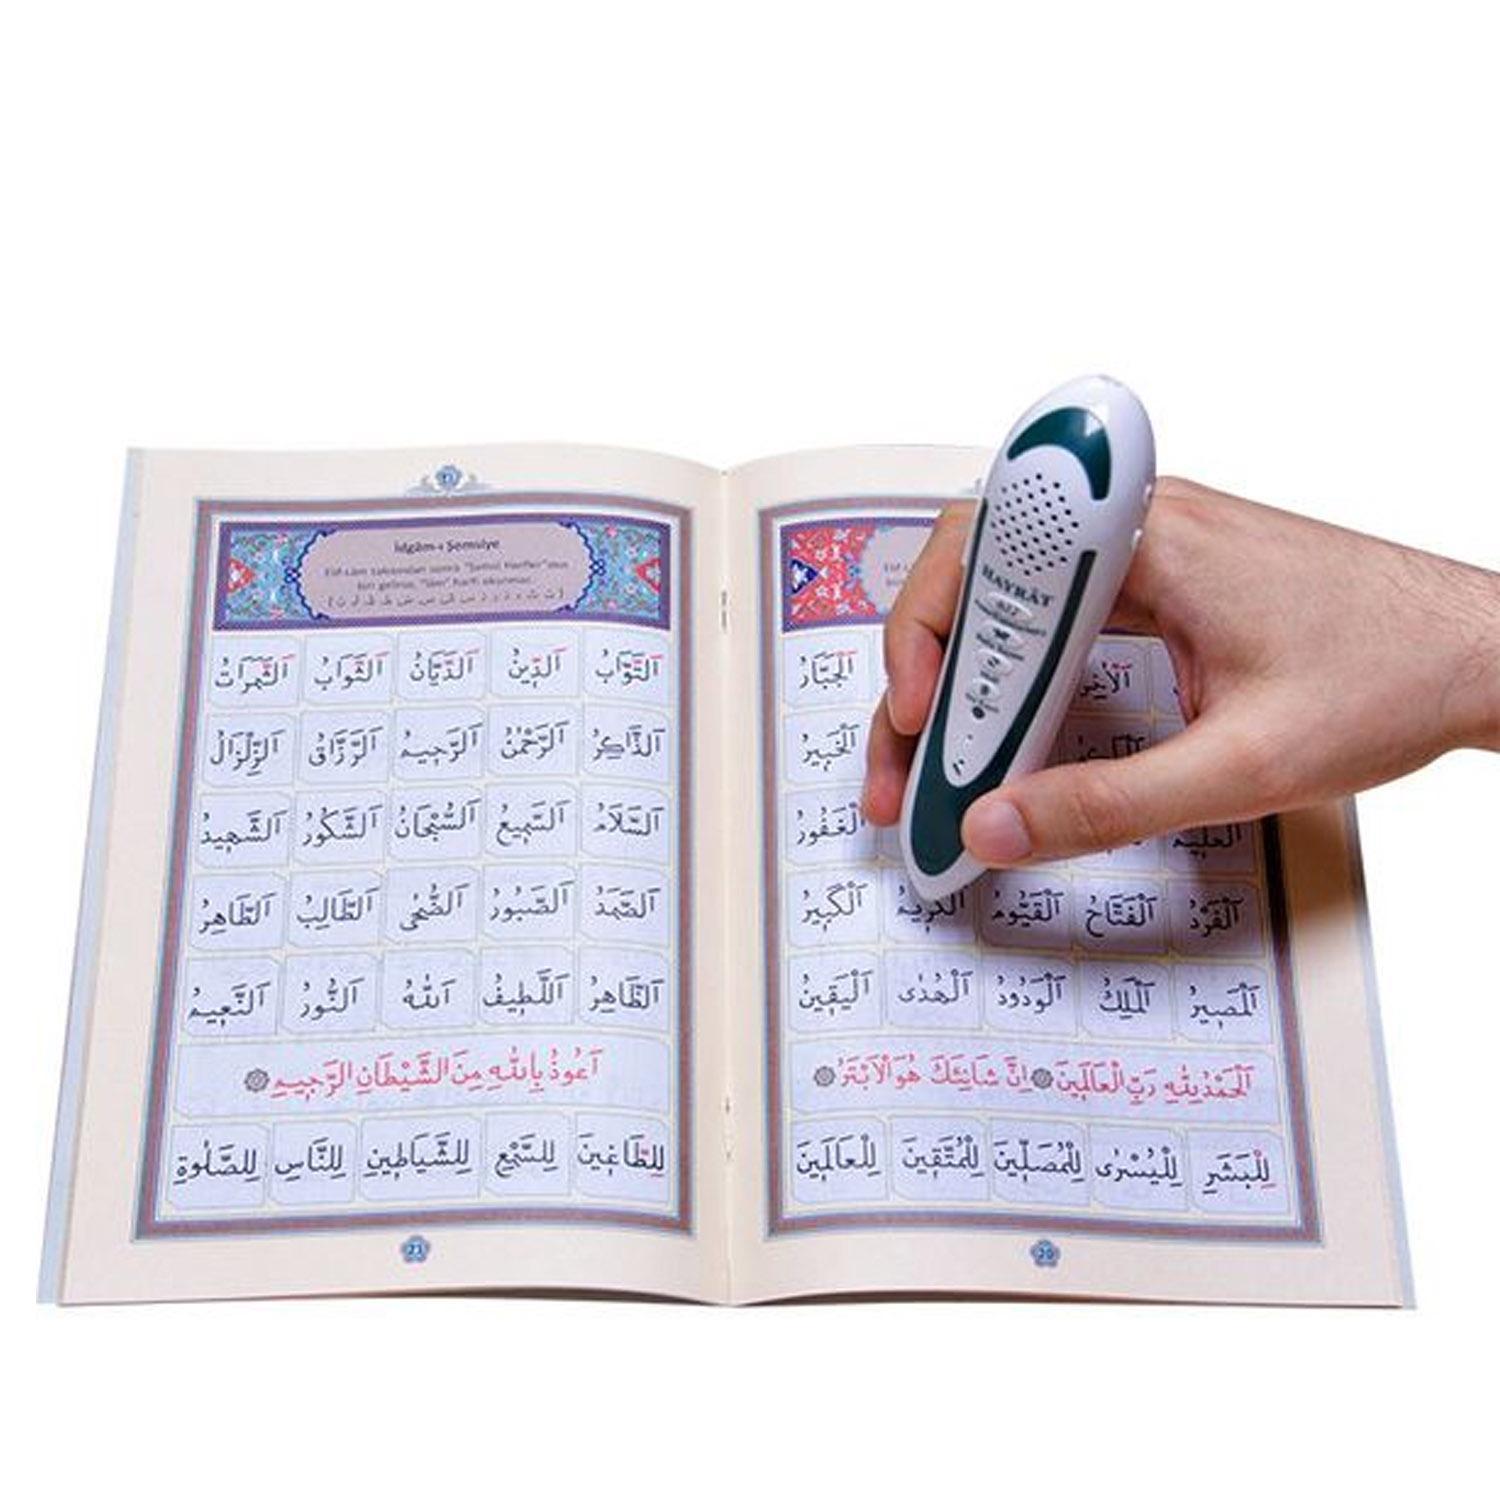 اَلْجَبَّارُ
اَلْخَبِيرُ
اَلْغَفُورُ
اَلْفَرْدُ اَلْفَتَّاحُ اَلْقَيُّومُ اَلْكَرِيمُ اَلْكَبِيرُ
اَلْمَصِيرُ اَلْمَلِكُ اَلْوَدُودُ اَلْهُدٰى اَلْيَقِينُ
اَلْحَمْدُ لِلّٰهِ رَبِّ الْعَالَمِينَ اِنَّ شَانِئَكَ هُوَ الْاَبْتَرُ
لِلْبَشَرِ لِلْيُسْرٰى لِلْمُصَلِّينَ لِلْمُتَّقِينَ لِلْعَالَمِينَ
20
HAYRÂT
21
İdgâm-ı Şemsiye
Elif-Lâm takısından sonra "Şemsî Harfler"den
biri gelirse, "lâm" harfi okunmaz.
اَلتَّوَّابُ اَلدِّينُ اَلدَّيَّانُ اَلثَّوَابُ اَلثَّمَرَاتُ
اَلذَّاكِرُ اَلرَّحْمٰنُ اَلرَّحِيمُ اَلرَّزَّاقُ اَلزِّلْزَالُ
اَلسَّلَامُ اَلسَّمِيعُ اَلسُّبْحَانُ اَلشَّكُورُ اَلشَّهِيدُ
اَلصَّمَدُ اَلصَّبُورُ اَلضُّحٰى اَلطَّالِبُ اَلطَّاهِرُ
اَلظَّاهِرُ اَللَّطِيفُ اَللّٰهُ اَلنُّورُ اَلنَّعِيمُ
اَعُوذُ بِاللّٰهِ مِنَ الشَّيْطَانِ الرَّجِيمِ
لِلطَّاغِينَ لِلسَّمْعِ لِلشَّيَاطِينِ لِلنَّاسِ لِلصَّلٰوةِ
21